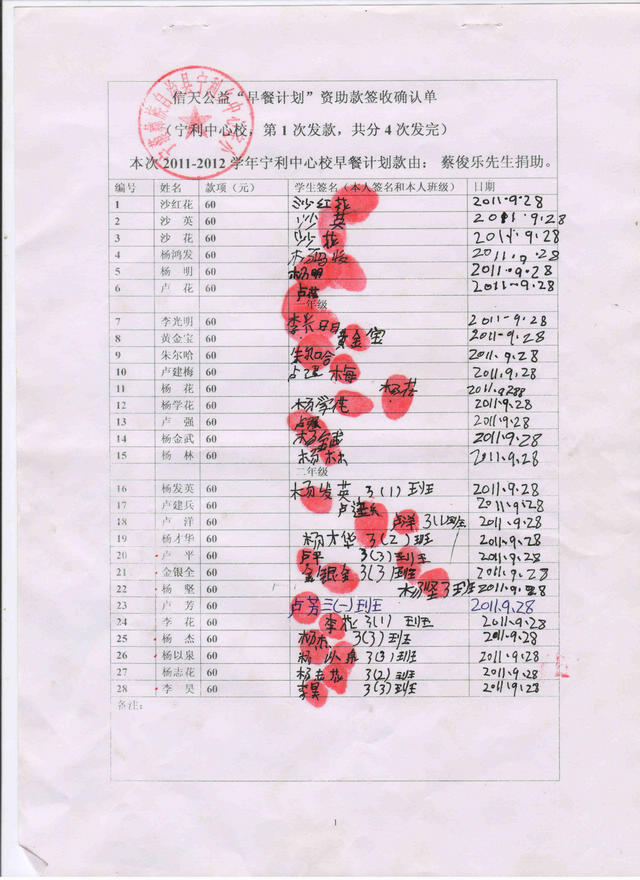 信天公益“早餐计划”资助款签收确认单
（宁利中心校，第1次发款，共分4次发完）
本次2011-2012学年宁利中心校早餐计划款由： 蔡俊乐先生捐助。
编号 姓名 款项（元） 学生签名（本人签名和本人班级） 日期
1 沙红花 60 沙红花 2011.9.28
2 沙 英 60 沙英 2011.9.28
3 沙 花 60 沙花 2011.9.28
4 杨鸿发 60 杨鸿发 2011.9.28
5 杨 明 60 杨明 2011.9.28
6 卢 花 60 卢花 2011.9.28
一年级
7 李光明 60 李光明 2011.9.28
8 黄金宝 60 黄金宝 2011.9.28
9 朱尔哈 60 2011.9.28
10 卢建梅 60 卢建梅 2011.9.28
11 杨 花 60 杨花 2011.9.288
12 杨学花 60 杨学花 2011.9.28
13 卢 强 60 卢强 2011.9.28
14 杨金武 60 杨金武 2011.9.28
15 杨 林 60 杨林 2011.9.28
二年级
16 杨发英 60 杨发英 3(1)班 2011.9.28
17 卢建兵 60 卢建兵 2011.9.28
18 卢 洋 60 卢洋 3(1)班 2011.9.28
19 杨才华 60 杨才华 3(2)班 2011.9.28
20 卢 平 60 卢平 3(3)班 2011.9.28
21 金银全 60 金银全 3(3)班 2011.9.28
22 杨 坚 60 杨坚 3班 2011.9.28
23 卢 芳 60 卢芳三(一)班 2011.9.28
24 李 花 60 李花 3(1)班 2011.9.28
25 杨 杰 60 杨杰 3(3)班 2011.9.28
26 杨以泉 60 杨以泉 3(3)班 2011.9.28
27 杨志花 60 杨志花 3(2)班 2011.9.28
28 李 昊 60 李昊 3(3)班 2011.9.28
备注：
1